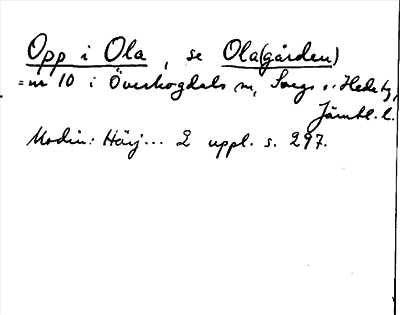 Opp i Ola, se Ola(gården)
= nr 10 i Överhogdals sn, Svegs o. Hede tg,
Jämtl. l.
Modin: Härj... 2 uppl. s. 297.